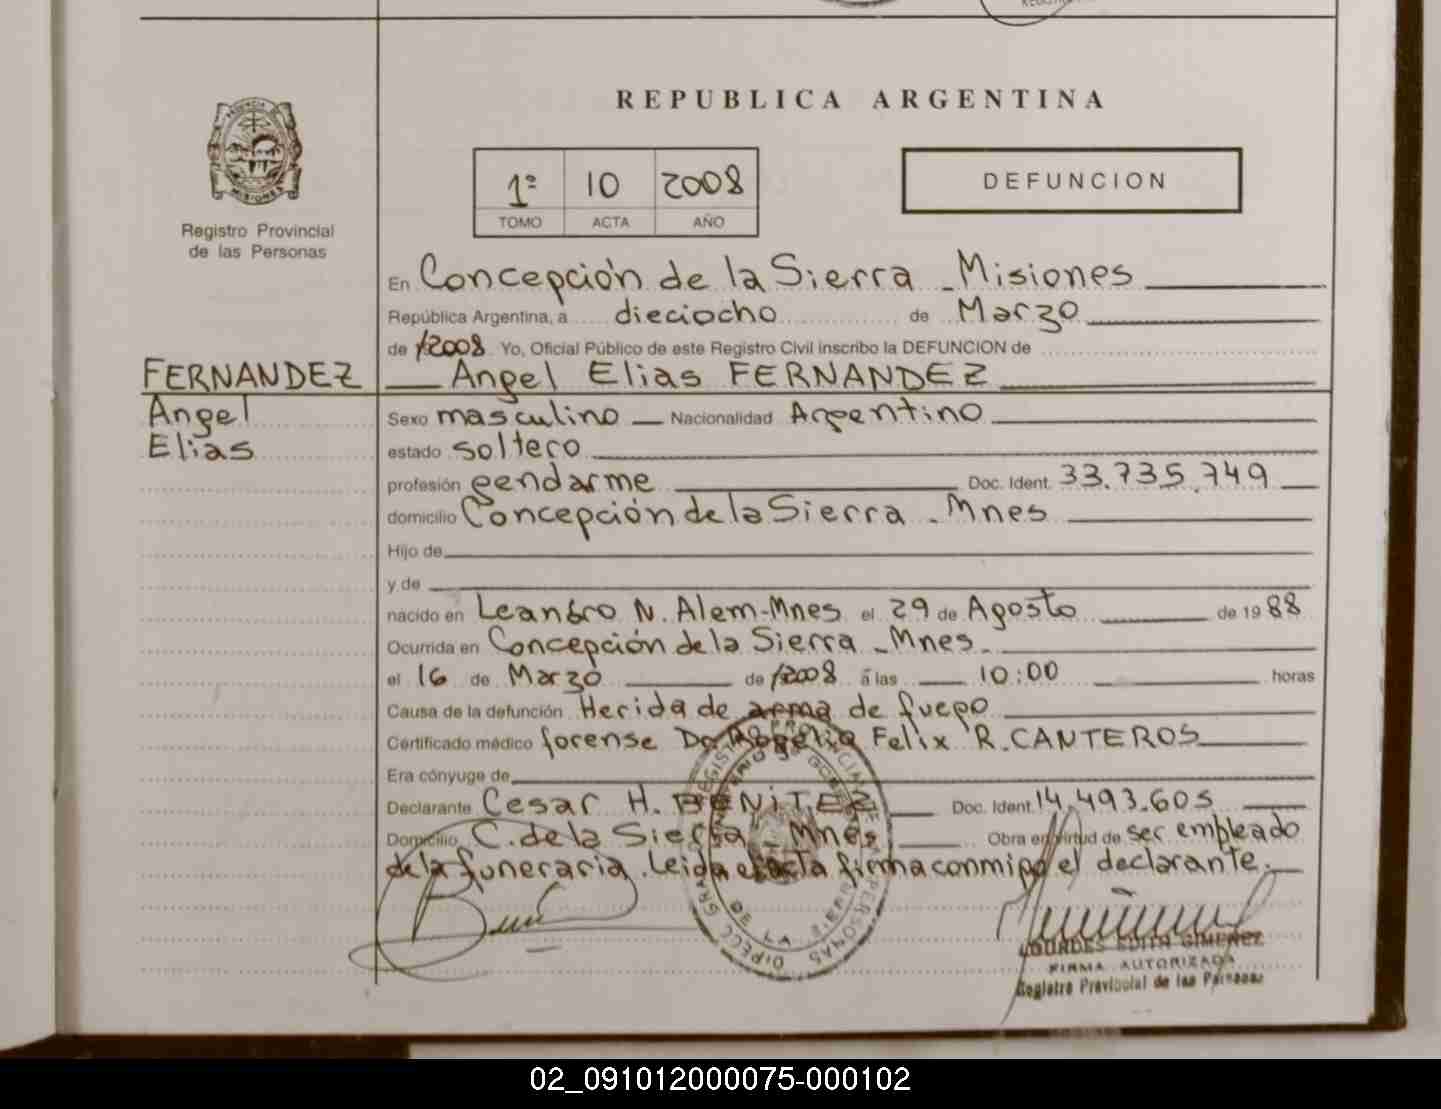 REPUBLICA ARGENTINA
1º 10 2008
TOMO ACTA AÑO
DEFUNCION
Registro Provincial
de las Personas
En Concepción de la Sierra - Misiones
República Argentina, a dieciocho de Marzo
de 2008 Yo, Oficial Público de este Registro Civil inscribo la DEFUNCION de
FERNANDEZ
Angel
Elias
Angel Elias FERNANDEZ
Sexo masculino Nacionalidad Argentino
estado soltero
profesión gendarme Doc. Ident. 33.735.749
domicilio Concepción de la Sierra - Mnes
Hijo de
y de
nacido en Leandro N. Alem-Mnes el 29 de Agosto de 1988
Ocurrida en Concepción de la Sierra - Mnes.
el 16 de Marzo de 2008 a las 10:00 horas
Causa de la defunción Herida de arma de fuego
Certificado médico forense Felix R. CANTEROS
Era cónyuge de
Declarante Cesar H. BENITEZ Doc. Ident. 14.493.605
Domicilio C. de la Sierra - Mnes Obra en virtud de ser empleado
de la funeraria. Leida el acta firma conmigo el declarante.
LOURDES EDITH GIMENEZ
FIRMA AUTORIZADA
Registro Provincial de las Personas
02_091012000075-000102